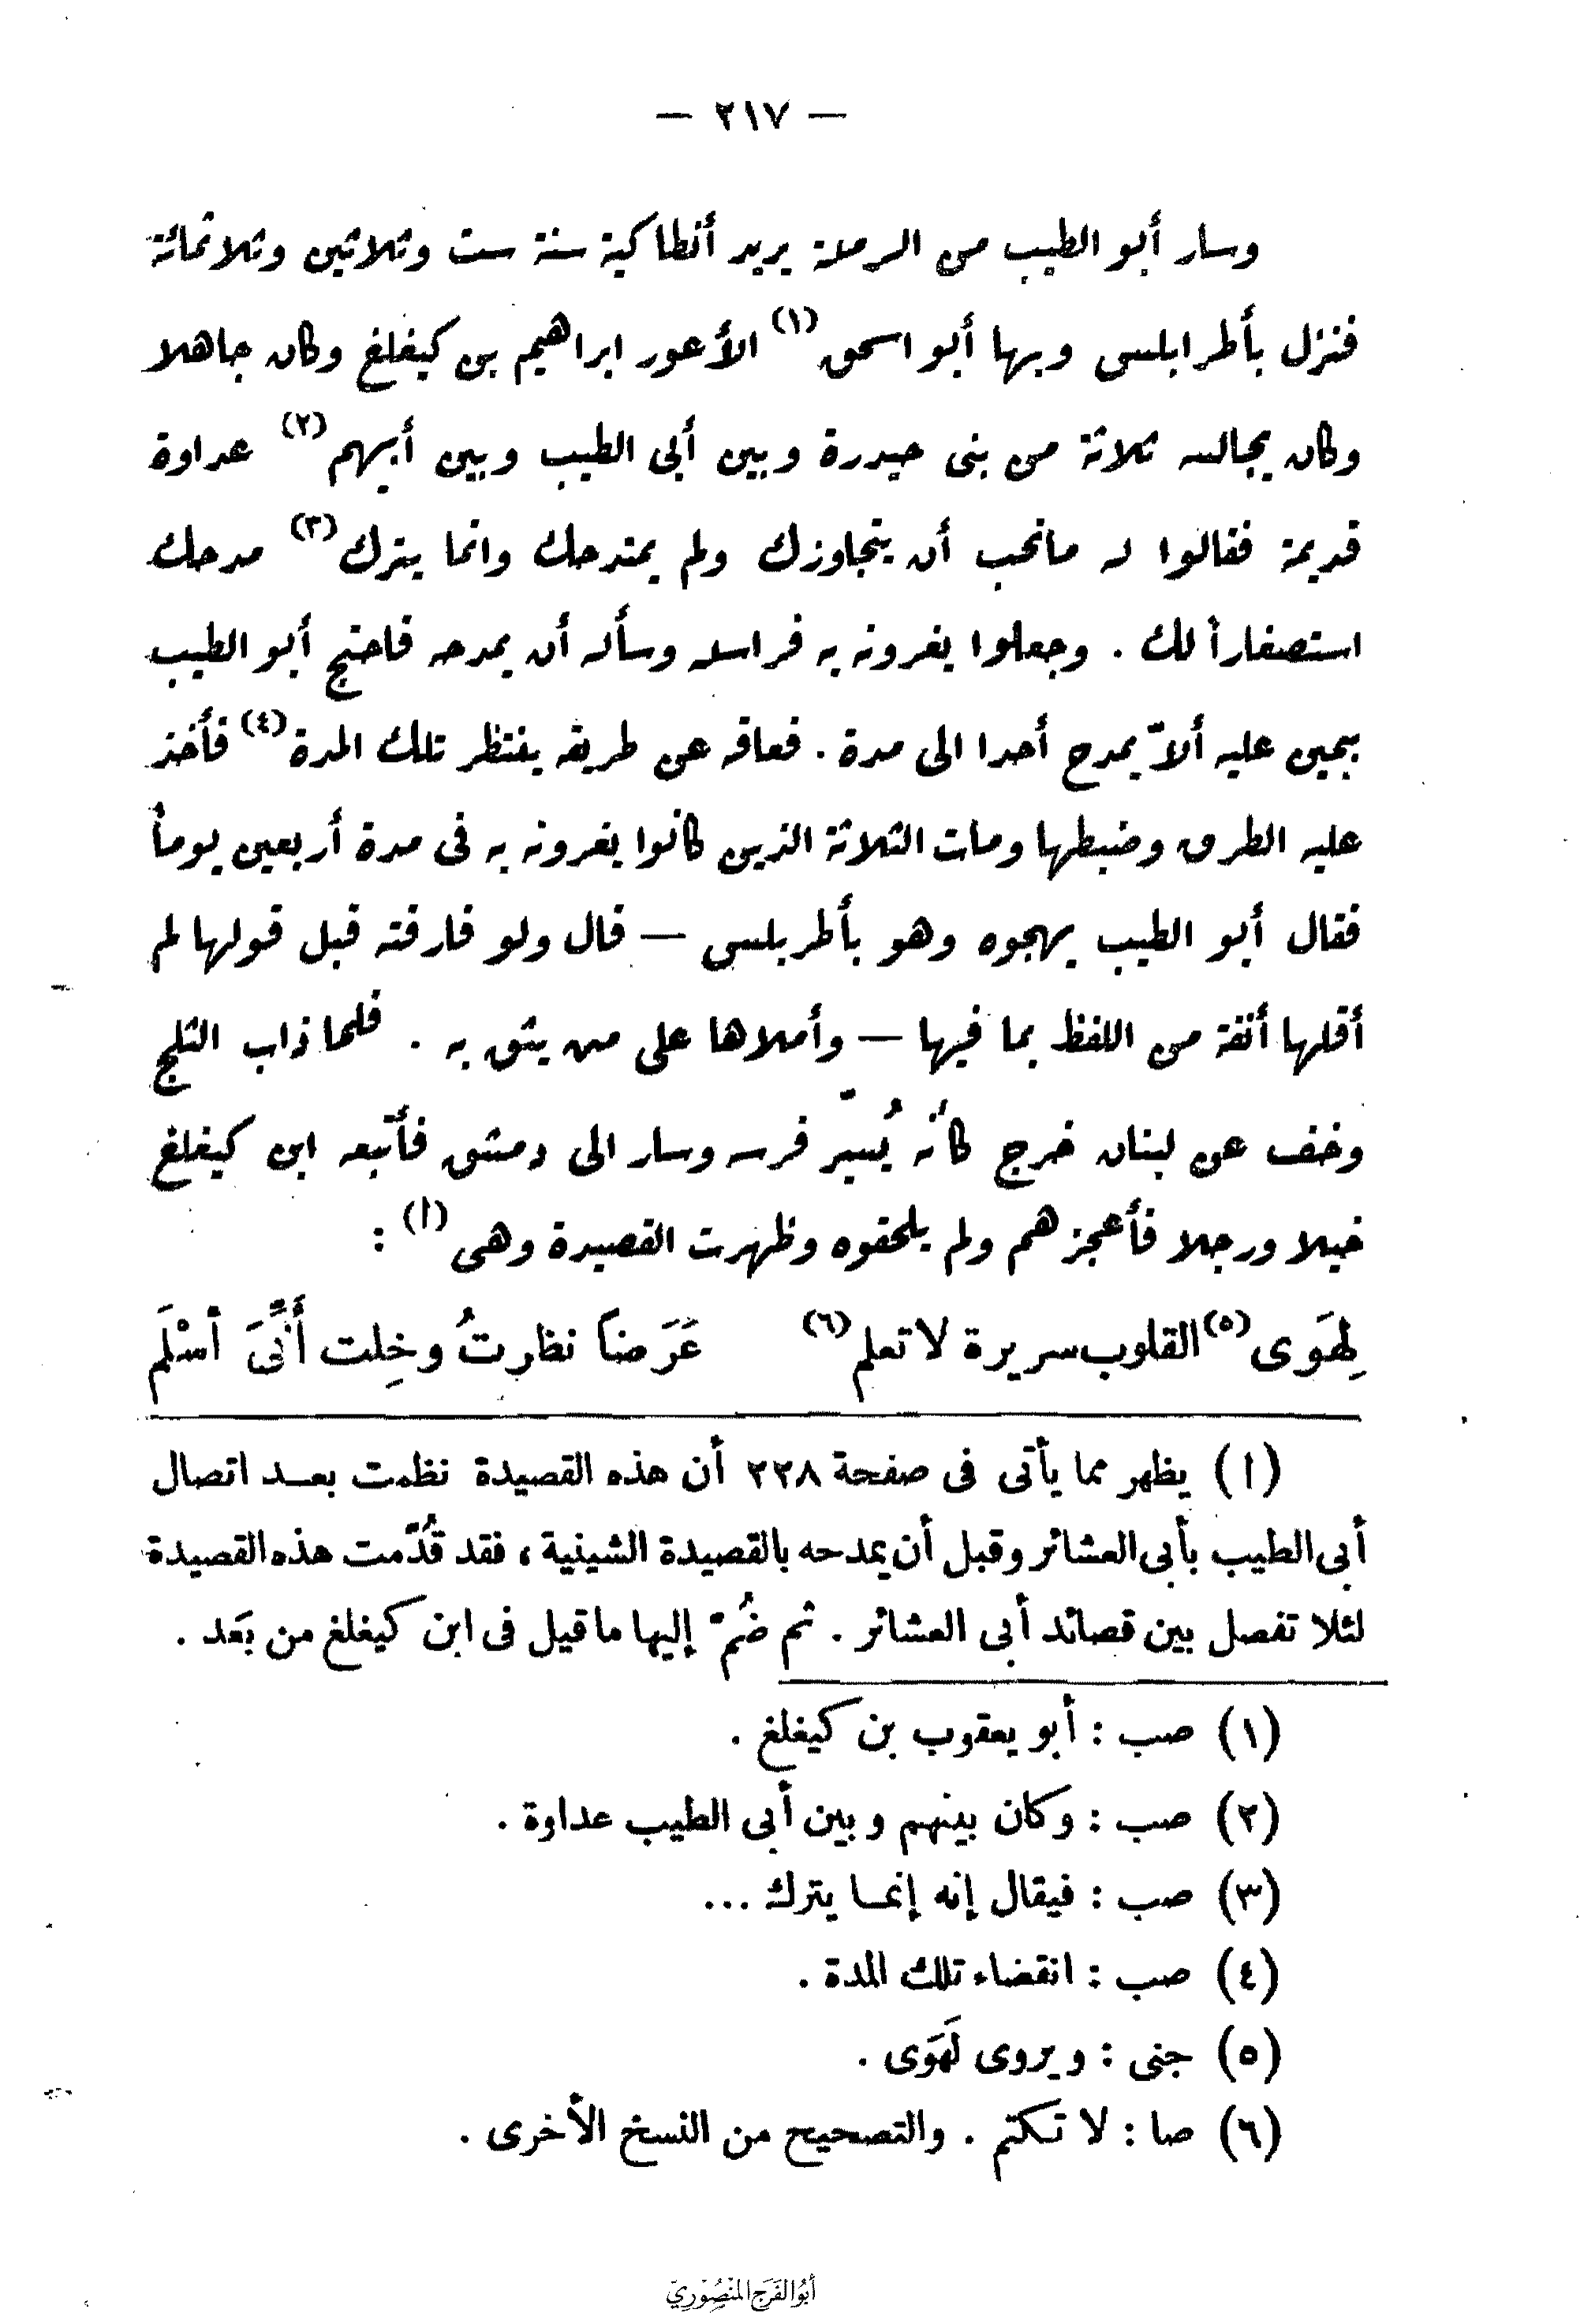 — ٢١٧ —
وسار أبو الطيب من الرملة يريد أنطاكية سنة ست وثلاثين وثلاثمائة
فنزل بأطرابلس وبها أبو اسحق (١) الأعور ابراهيم بن كيغلغ وكان جاهلا
وكان يجالسه ثلاثة من بنى حيدرة وبين أبى الطيب وبين أبيهم (٢) عداوة
قديمة فقالوا له مانحب أن يتجاوزك ولم يمتدحك وانما يترك (٣) مدحك
استصغاراً لك . وجعلوا يغرونه به فراسله وسأله أن يمدحه فاحتج أبو الطيب
بيمين عليه ألاّ يمدح أحدا الى مدة . فعاقه عن طريقه ينتظر تلك المدة (٤) فأخذ
عليه الطرق وضبطها ومات الثلاثة الذين كانوا يغرونه به فى مدة أربعين يوماً
فقال أبو الطيب يهجوه وهو بأطربلس — قال ولو فارقته قبل قولها لم
أقلها أنفة من اللفظ بما فيها — وأملاها على من يثق به . فلما ذاب الثلج
وخف عن لبنان خرج كأنه يُسيّر فرسه وسار الى دمشق فأتبعه ابن كيغلغ
خيلا ورجلا فأعجزهم ولم يلحقوه وظهرت القصيدة وهى (ا) :
لِهَوَى (٥) القلوب سريرة لا تعلم (٦) عَرَضاً نظرتُ وخِلت أنِّىَ أسْلَم
(ا) يظهر مما يأتى فى صفحة ٢٢٨ أن هذه القصيدة نظمت بعد اتصال
أبى الطيب بأبى العشائر وقبل أن يمدحه بالقصيدة الشينية ، فقد قُدّمت هذه القصيدة
لئلا تفصل بين قصائد أبى العشائر . ثم ضُمّ إليها ما قيل فى ابن كيغلغ من بَعد .
(١) صب : أبو يعقوب بن كيغلغ .
(٢) صب : وكان بينهم وبين أبى الطيب عداوة .
(٣) صب : فيقال إنه إنما يترك ...
(٤) صب : انقضاء تلك المدة .
(٥) جنى : ويروى لَهَوَى .
(٦) صا : لا تكتم . والتصحيح من النسخ الأخرى .
أبُو الفَرَج المَنْصُوْرِيّ